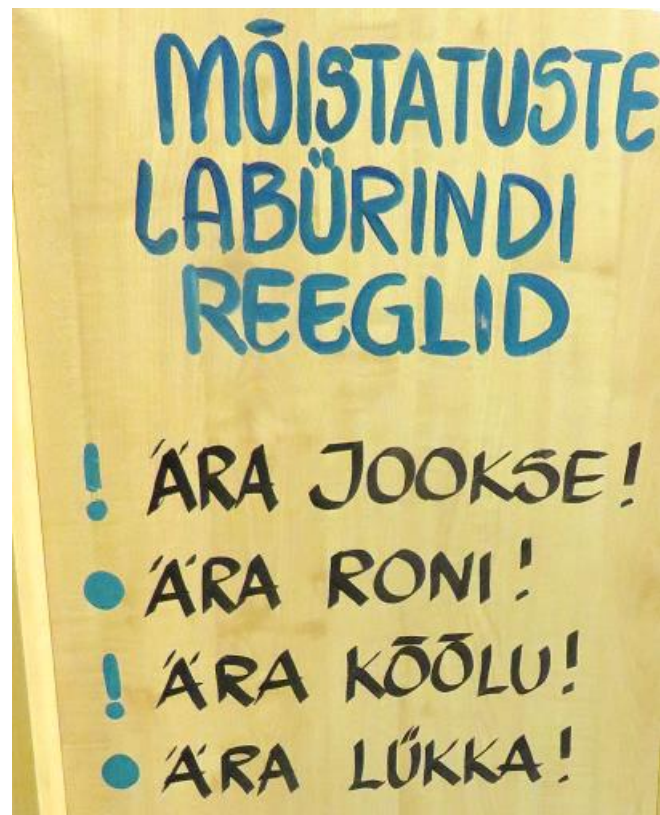 MÕISTATUSTE
LABÜRINDI
REEGLID
! ÄRA JOOKSE!
• ÄRA RONI!
! ÄRA KÕÕLU!
• ÄRA LÜKKA!